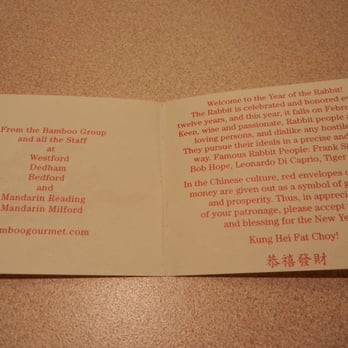 From the Bamboo Group
and all the Staff
at
Westford
Dedham
Bedford
and
Mandarin Reading
Mandarin Milford
mboogourmet.com
Welcome to the Year of the Rabbit!
The Rabbit is celebrated and honored e
twelve years, and this year, it falls on Febr
Keen, wise and passionate, Rabbit people a
loving persons, and dislike any hostile
They pursue their ideals in a precise and
way. Famous Rabbit People: Frank Si
Bob Hope, Leonardo Di Caprio, Tiger
In the Chinese culture, red envelopes c
money are given out as a symbol of g
and prosperity. Thus, in appreciat
of your patronage, please accept
and blessing for the New Ye
Kung Hei Fat Choy!
恭禧發財